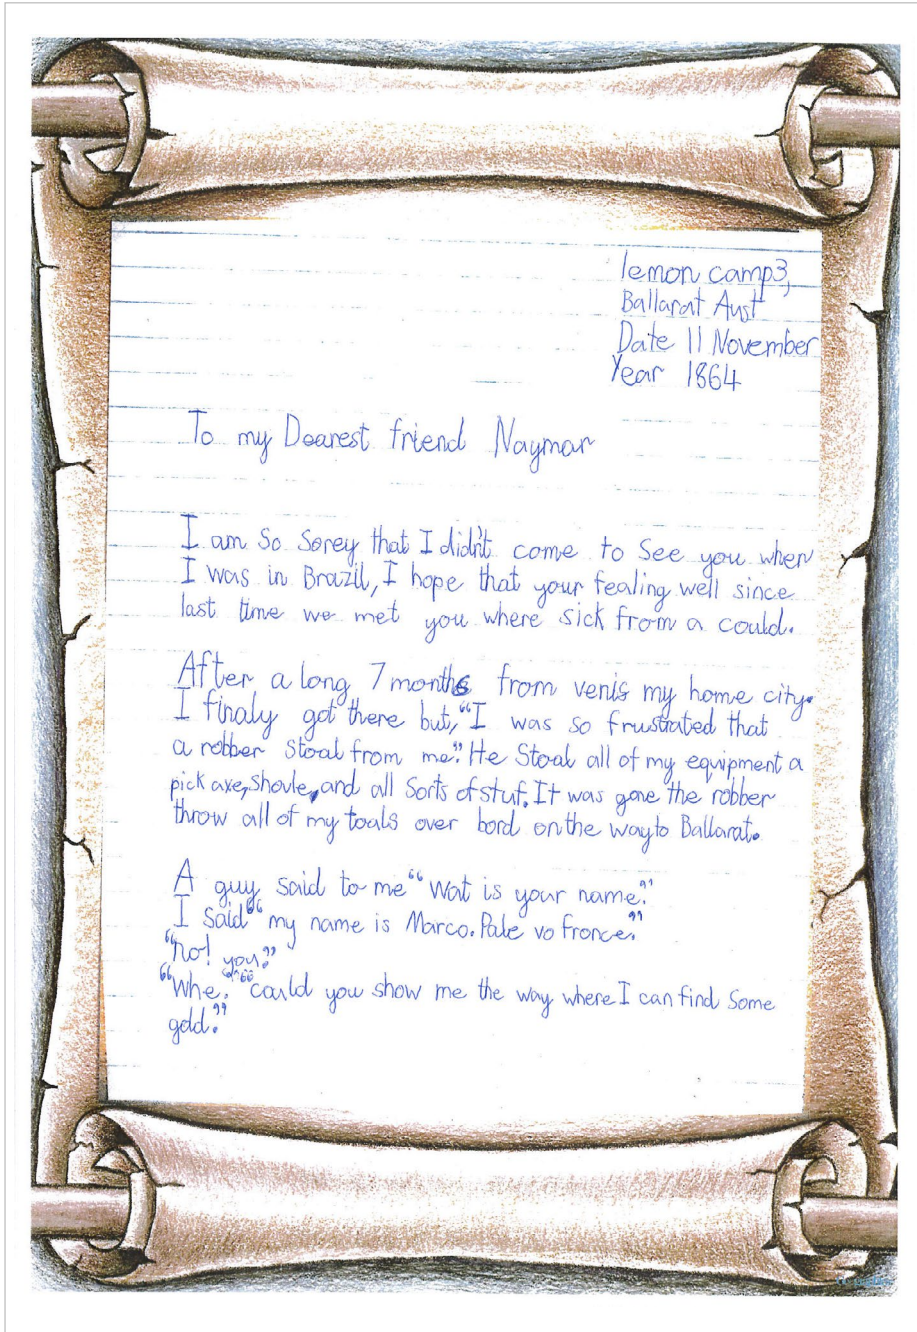 lemon camp3,
Ballarat Aust
Date 11 November
Year 1864
To my Dearest friend Naymar
I am So Sorey that I didn't come to See you when
I was in Brazil, I hope that your fealing well since
last time we met you where sick from a could.
After a long 7 months from venis my home city.
I finaly got there but, "I was so frustrated that
a robber Stoal from me." He Stoal all of my equipment a
pick axe, shovle, and all Sorts of stuf. It was gone the robber
throw all of my toals over bord on the way to Ballarat.
A guy said to me "Wat is your name."
I Said "my name is Marco. Pale vo fronce."
"no! you."
"Whe." "could you show me the way where I can find Some
gold."